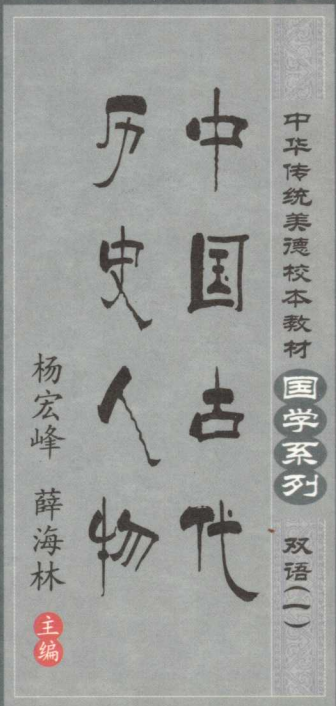 中华传统美德校本教材
国学系列
双语(一)
中国古代
历史人物
杨宏峰 薛海林
主编